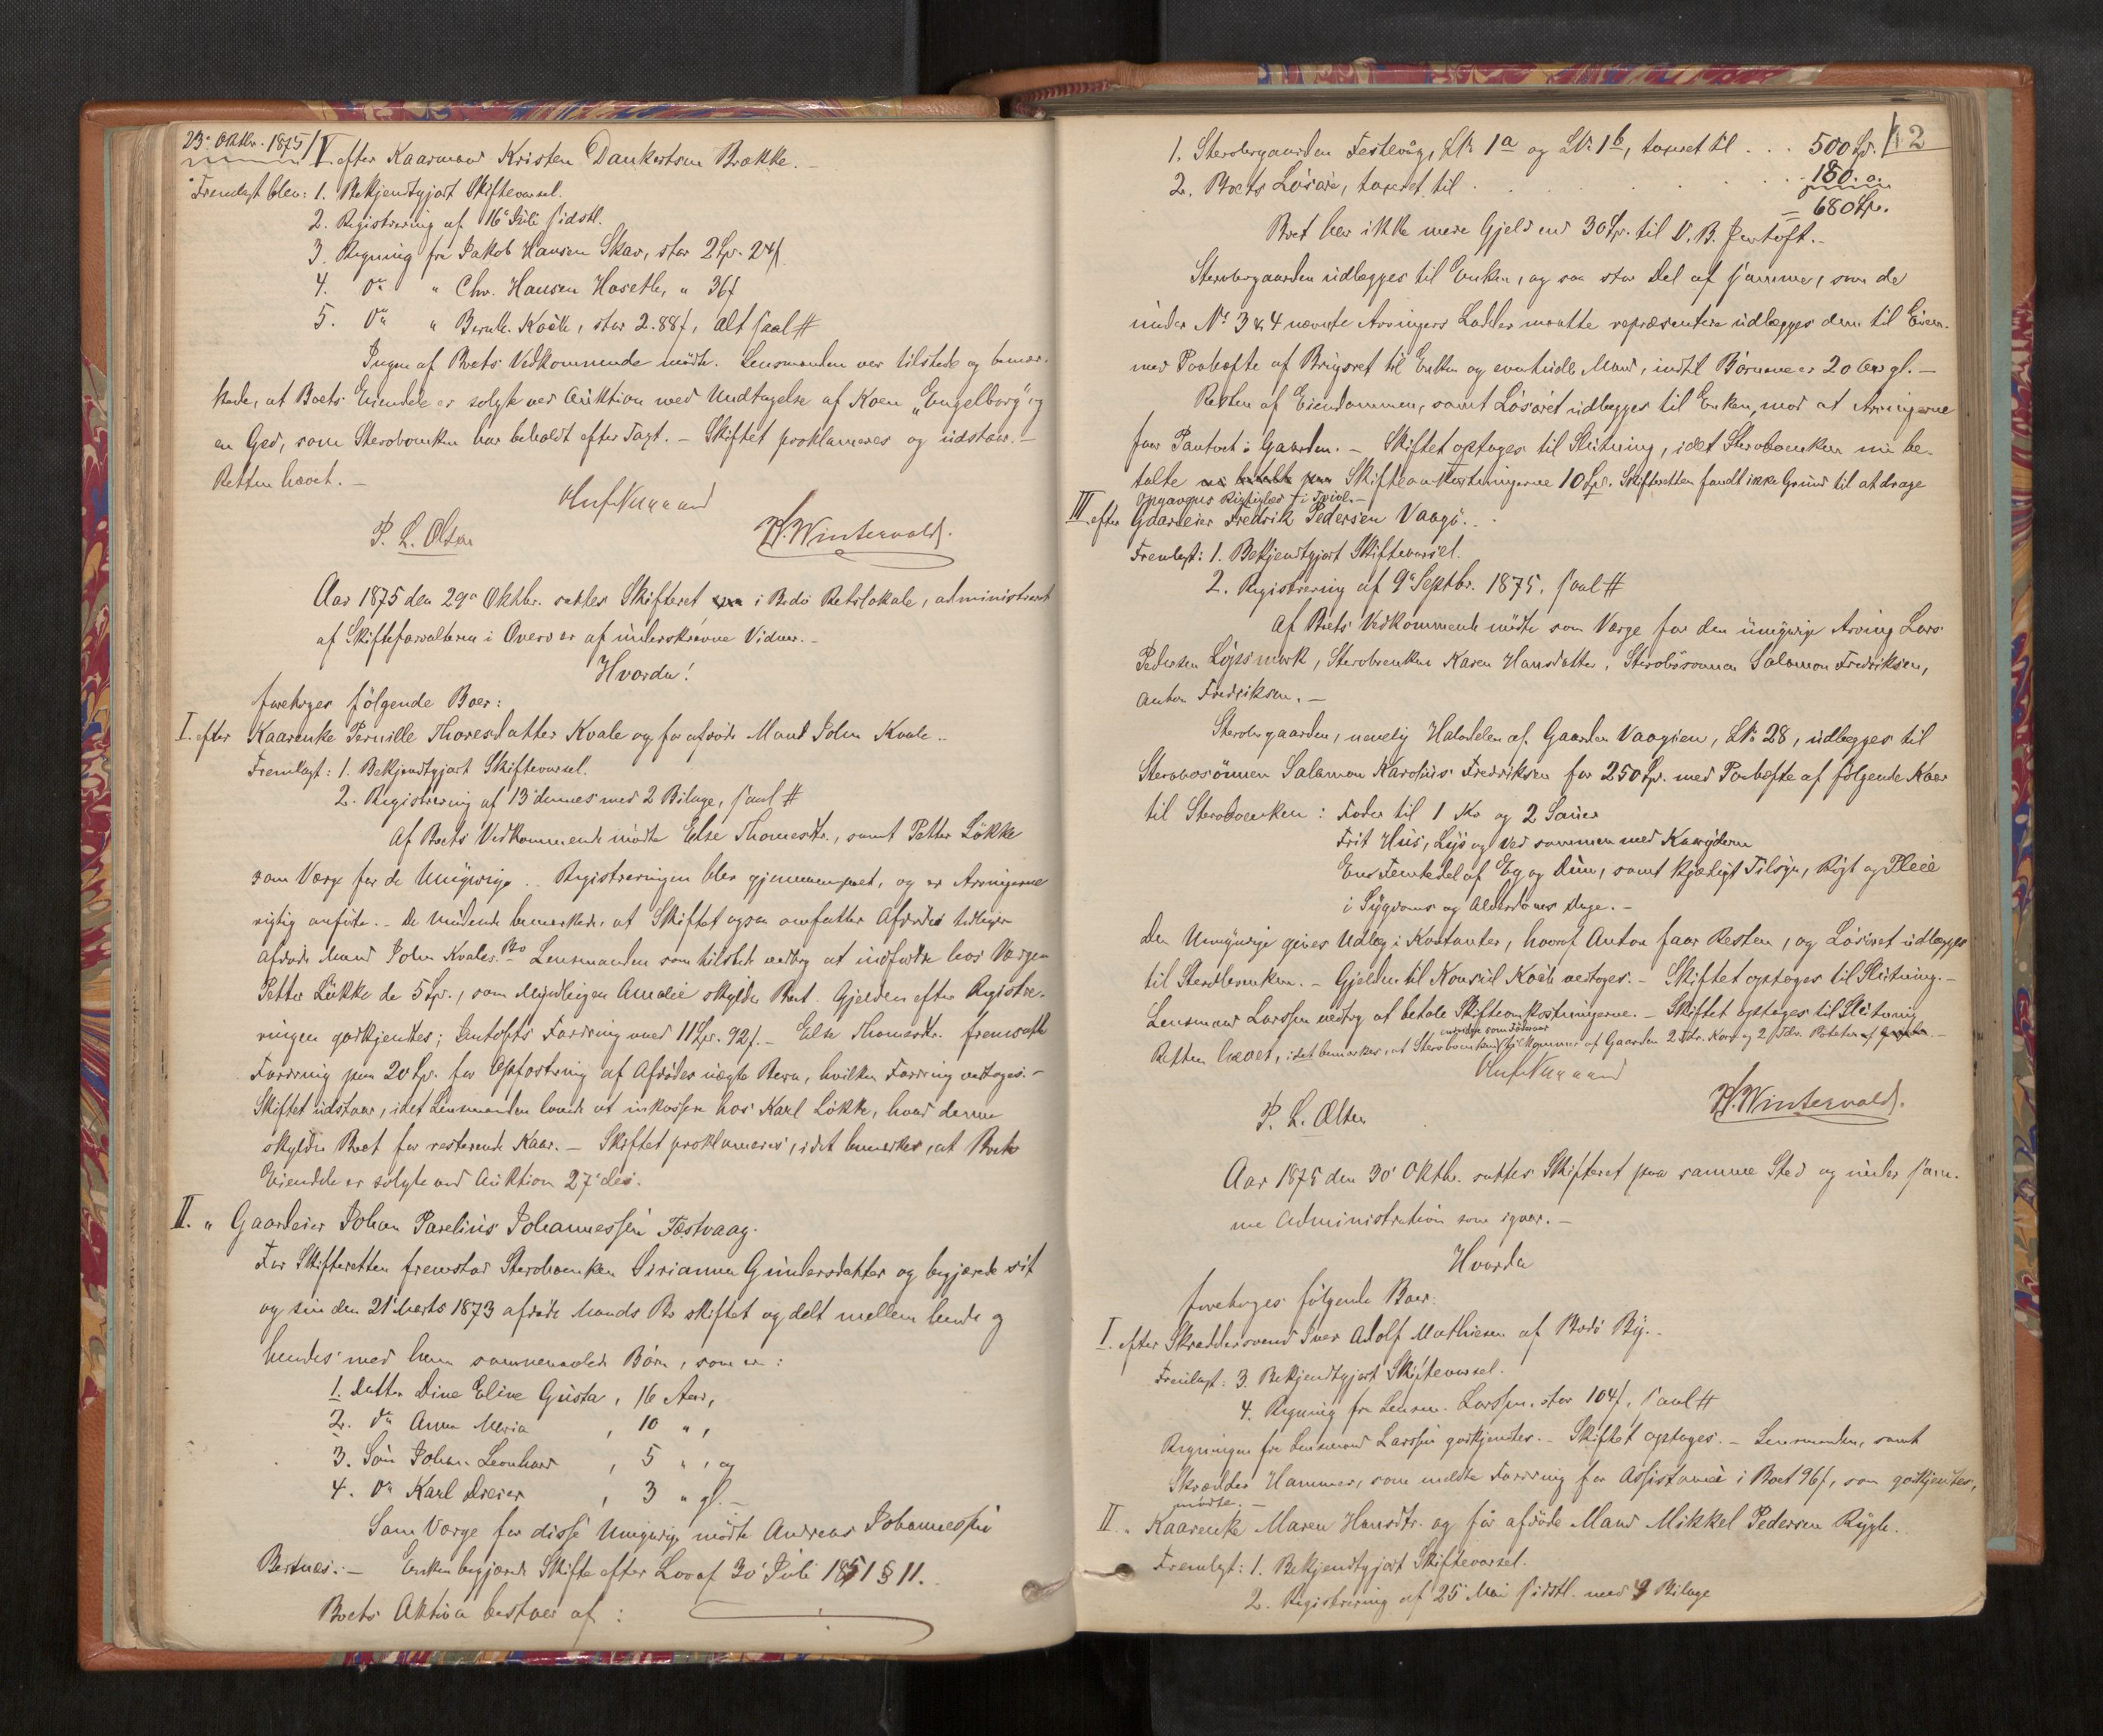 23' Oktbr. 1875
V. efter Kaarmand Kristen Dankertsen Brække. –
Fremlagt blev: 1. Bekjendtgjort Skiftevarsel.
2. Registrering af 16' Juli sidstl.
3. Regning fra Jakob Hansen Skav, stor 2 Spr. 24 f
4. Do " Chr. Hansen Hoseth, " 36 f
5. Do " Bernh. Koch, stor 2.88 f, alt saal #
Ingen af Boets Vedkommende mødte. Lensmanden var tilstede og bemær-
kede, at Boets Eiendele er solgte ved Auktion med Undtagelse af Koen „Engelborg" og
en Ged, som Sterboenken har beholdt efter Taxt. – Skiftet proklameres og udstaar. –
Retten hævet. –
P. L. Olsen
H. Wintervold.
Aar 1875 den 29' Oktbr. sattes Skifteret i Bodø Retslokale, administreret
af Skifteforvalteren i Overv. er af underskrevne Vidner. –
Hvorda!
foretoges følgende Boer:
I. efter Kaarenke Pernille Thoresdatter Kvale og før afdøde Mand John Kvale.
Fremlagt: 1. Bekjendtgjort Skiftevarsel.
2. Registrering af 13' dennes med 2 Bilage, saal #
Af Boets Vedkommende mødte Else Thomesdtr., samt Petter Løkke
som Værge for de Umyndige. Registreringen blev gjennemgaaet, og er Arvingerne
rigtig anførte. – De Mødende bemærkede, at Skiftet ogsaa omfatter Afdødes tidligere
afdøde Mand John Kvales Bo. Lensmanden som tilstede vedtog at indfordre hos Værgen
Petter Løkke de 5 Spr., som Myndlingen Amalie skylder Boet. Gjelden efter Registre-
ringen godkjendtes; Jentofts Fordring med 11 Spr. 92 f. – Else Thomesdtr. fremsatte
Fordring paa 20 Spr. for Opfostring af Afdødes uægte Barn, hvilken Fordring vedtoges. –
Skiftet udstaar, idet Lensmanden lovede at inkassere hos Karl Løkke, hvad denne
skylder Boet for resterende Kaar. – Skiftet proklameres, idet bemærkes, at Boets
Eiendele er solgte ved Auktion 27' ds.
II. " Gaardeier Johan Parelius Johannessen Fæstvaag.
For Skifteretten fremstod Sterboenken Sirianna Gundersdatter og begjærede sit
og sin den 21' Marts 1873 afdøde Mands Bo skiftet og delt mellem hende og
hendes med ham sammenavlede Børn, som er:
1. Datter Dine Eline Gusta, 16 Aar,
2. Do Anna Maria, 10 ",
3. Søn Johan Leonhard, 5 ", og
4. Do Karl Dreier, 3 " gl. –
Som Værge for disse Umyndige mødte Andreas Johannessen
Bertnes. – Enken begjærede Skifte efter Lov af 30' Juli 1851 § 11.
Boets Aktiva bestaar af:
12
1. Sterbogaarden Festevåg, LNr. 1a og LNr. 1b, taxeret til . . . 500 Spr.
2. Boets Løsøre, taxeret til . . . 180. "
= 680 Spr.
Boet har ikke mere Gjeld end 30 Spr. til V. B. Jentoft. –
Sterbogaarden udlægges til Enken, og saa stor Del af samme, som de
under No 3 & 4 nævnte Arvingers Lodder maatte repræsentere udlægges dem til Eien-
med Paahefte af Brugsret til Enken og eventuelle Mand, indtil Børnene er 20 Aar gl. –
Resten af Eiendommen, samt Løsøret udlægges til Enken, mod at Arvingerne
faar Panteret i Gaarden. – Skiftet optages til Slutning, idet Sterboenken nu be-
talte Skifteomkostningerne 10 Spr. Skifteretten fandt ikke Grund til at drage
Opgavens Rigtighed i Tvivl. –
III. efter Gaardeier Fredrik Pedersen Vaagø.
Fremlagt: 1. Bekjendtgjort Skiftevarsel.
2. Registrering af 9' Septbr. 1875. saal #
Af Boets Vedkommende mødte som Værge for den umyndige Arving Lars
Pedersen Løpsmark, Sterboenken Karen Hansdatter, Sterbosønnen Salamon Fredriksen,
Anton Fredriksen. –
Sterbogaarden, nemlig Halvdelen af Gaarden Vaagøen, LNr. 28, udlægges til
Sterbosønnen Salamon Karolius Fredriksen for 250 Spr. med Paahefte af følgende Kaar
til Sterboenken: Foder til 1 Ko og 2 Sauer
Frit Hus, Lys og Ved sammen med Kaaryderen
En Femtedel af Eg og Dun, samt kjærligt Tilsyn, Røgt og Pleie
i Sygdoms og Alderdoms Dage. –
Den Umyndige gives Udlæg i Kontanter, hvoraf Anton faar Resten, og Løsøret udlægges
til Sterboenken. – Gjelden til Konsul Koch vedtoges. – Skiftet optoges til Slutning. –
Lensmand Larssen vedtog at betale Skifteomkostningerne. – Skiftet optages til Slutning
Retten hævet, idet bemærkes, at Sterboenken tilkommer af Gaarden 2 Tdr. Korn og 2 Tdr. Poteter
P. L. Olsen
H. Wintervold.
Aar 1875 den 30' Oktbr. sattes Skifteret paa samme Sted og under sam-
me Administration som igaar. –
Hvorda
foretoges følgende Boer:
I. efter Skræddersvend Iver Adolf Mathisen af Bodø By.
Fremlagt: 3. Bekjendtgjort Skiftevarsel.
4. Regning fra Lensm. Larssen, stor 104 f, saal #
Regningen fra Lensmand Larssen godkjendtes. – Skiftet optoges. – Lensmanden, samt
Skrædder Hammer, som meldte Fordring for Assistance i Boet 96 f, som godkjendtes,
mødte. –
II. " Kaarenke Maren Hansdtr. og før afdøde Mand Mikkel Pedersen Rygh.
Fremlagt: 1. Bekjendtgjort Skiftevarsel.
2. Registrering af 25' Mai sidstl. med 9 Bilage